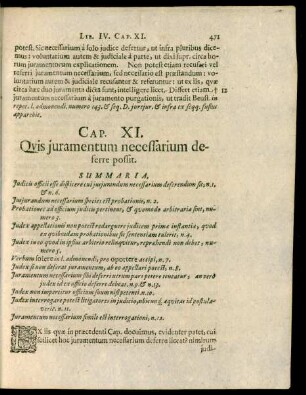 LIB. IV. CAP. XI. 471
potest. Sic necessarium à solo judice defertur, ut infra pluribus dice-
mus: voluntarium autem & judiciale à parte, ut dixi supr. circa ho-
rum juramentorum explicationem. Non potest etiam recusari vel
referri juramentum necessarium, sed necessario est præstandum: vo-
luntarium autem & judiciale recusantur & referuntur: ut ex iis, quæ
circa hæc duo juramenta dicta sunt, intelligere licet. Differt etiam † 12
juramentum necessarium à juramento purgationis, ut tradit Beust. in
repet. l. admonendi. numero 145. & seq. D. jurejur. & infra ex seqq. fusius
apparebit.
CAP. XI.
Qvis juramentum necessarium de-
ferre possit.
SUMMARIA.
Judicis officii esse dispicere cui jusjurandum necessarium deferendum sit, n. 1,
& n. 6.
Jusjurandum necessarium species est probationis, n. 2.
Probationes ad officium judicis pertinent, & quomodo arbitrariæ sint, nu-
mero 3.
Judex appellationis non potest redarguere judicem primæ instantiæ, quod
ex quibusdam probationibus sic sententiam tulerit, n. 4.
Judex in eo quod in ipsius arbitrio relinquitur, reprehendi non debet, nu-
mero 5.
Verbum solere in l. admonendi, pro oportere accipi, n. 7.
Judex si non deferat juramentum, ab eo appellari potest, n. 8.
Juramentum necessarium sibi deferri nemini pars petere tenetur, an vero
judex id ex officio deferre debeat, n. 9. & n. 13.
Judex non impertitur officium suum nisi petenti n. 10.
Judex interrogare potest litigatores in judicio, ubicunq; æquitas id postula-
verit. n. 11.
Juramentum necessarium simile est interrogationi, n. 12.
EX iis quæ in præcedenti Cap. docuimus, evidenter patet, cui
scilicet hoc juramentum necessarium deferre liceat? nimirum
judi-